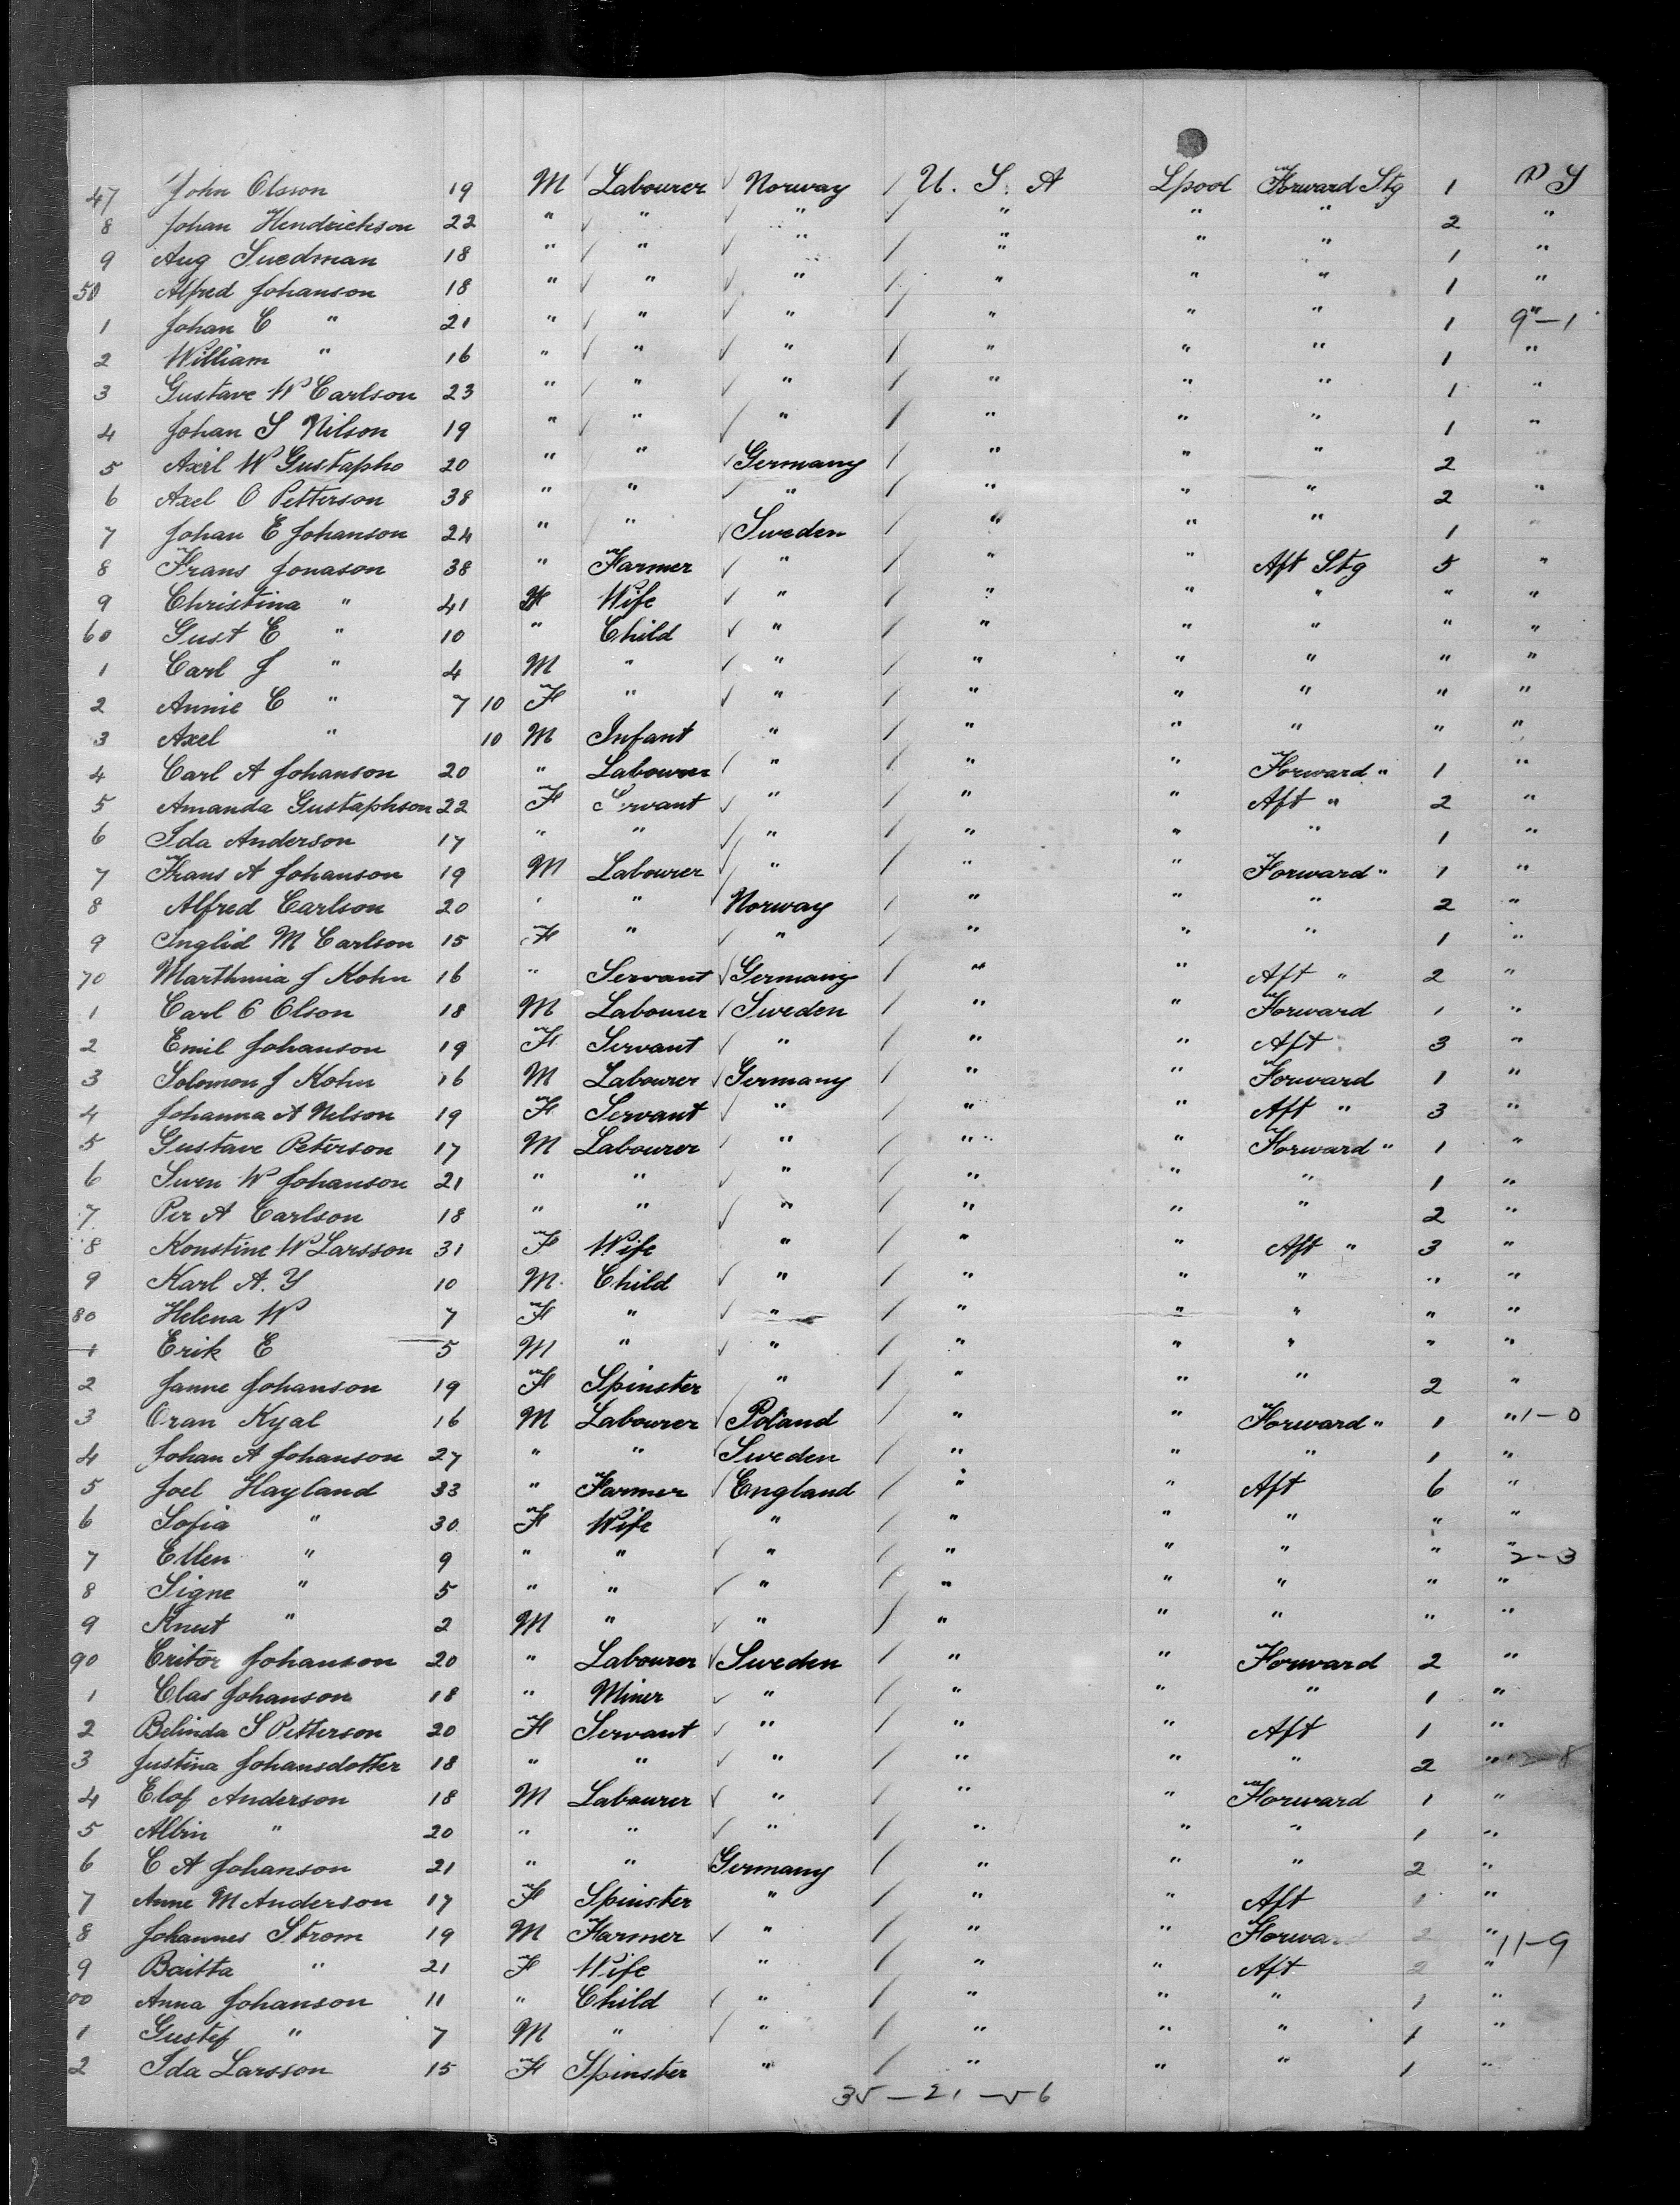 47 John Olsson 19 M Labourer Norway U. S. A Lpool Forward Stg 1 P S
8 Johan Hendrickson 22 " " " " " " 2 "
9 Aug Suedman 18 " " " " " " 1 "
50 Alfred Johanson 18 " " " " " " 1 "
1 Johan C " 21 " " " " " " 1 " 9-1
2 William " 16 " " " " " " 1 "
3 Gustave W Carlson 23 " " " " " " 1 "
4 Johan S Nilson 19 " " " " " " 1 "
5 Axel W Gustapho 20 " " Germany " " " 2 "
6 Axel O Petterson 38 " " " " " " 2 "
7 Johan E Johanson 24 " " Sweden " " " 1 "
8 Frans Jonason 38 " Farmer " " " Aft Stg 5 "
9 Christina " 41 F Wife " " " " " "
60 Gust E " 10 " Child " " " " " "
1 Carl J " 4 M " " " " " " "
2 Annie C " 7 10 F " " " " " " "
3 Axel " 10 M Infant " " " " " "
4 Carl A Johanson 20 " Labourer " " " Forward " 1 "
5 Amanda Gustaphson 22 F Servant " " " Aft " 2 "
6 Ida Anderson 17 " " " " " " 1 "
7 Frans A Johanson 19 M Labourer " " " Forward " 1 "
8 Alfred Carlson 20 " " Norway " " " 2 "
9 Inglid M Carlson 15 F " " " " " 1 "
70 Marthinia J Kohn 16 " Servant Germany " " Aft " 2 "
1 Carl C Olson 18 M Labourer Sweden " " Forward 1 "
2 Emil Johanson 19 F Servant " " " Aft 3 "
3 Solomon J Kohn 16 M Labourer Germany " " Forward 1 "
4 Johanna A Nelson 19 F Servant " " " Aft " 3 "
5 Gustave Peterson 17 M Labourer " " " Forward " 1 "
6 Swen W Johanson 21 " " " " " " 1 "
7 Per A Carlson 18 " " " " " " 2 "
8 Konstine W Larsson 31 F Wife " " " Aft " 3 "
9 Karl A. Y 10 M. Child " " " " " "
80 Helena W 7 F " " " " " " "
1 Erik E 5 M " " " " " " "
2 Janne Johanson 19 F Spinster " " " " 2 "
3 Oran Kyal 16 M Labourer Poland " " Forward " 1 " 1-0
4 Johan A Johanson 27 " " Sweden " " " 1 "
5 Joel Hayland 33 " Farmer England " " Aft 6 "
6 Sofia " 30 F Wife " " " " " "
7 Ellen " 9 " " " " " " " " 2-3
8 Signe " 5 " " " " " " " "
9 Knut " 2 M " " " " " " "
90 Critor Johanson 20 " Labourer Sweden " " Forward 2 "
1 Clas Johanson 18 " Miner " " " " 1 "
2 Belinda S Petterson 20 F Servant " " " Aft 1 "
3 Justina Johansdotter 18 " " " " " " 2 " 8
4 Elof Anderson 18 M Labourer " " " Forward 1 "
5 Albin " 20 " " " " " " 1 "
6 C A Johanson 21 " " Germany " " " 2 "
7 Anne M Anderson 17 F Spinster " " " Aft 1 "
8 Johannes Strom 19 M Farmer " " " Forward 2 " 11-9
9 Baitta " 21 F Wife " " " Aft 2 "
00 Anna Johanson 11 " Child " " " " 1 "
1 Gustef " 7 M " " " " " 1 "
2 Ida Larsson 15 F Spinster " " " " 1 "
35 - 21 - 56